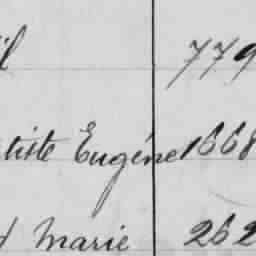 il 779
tiste Eugéne 1668
d Marie 262